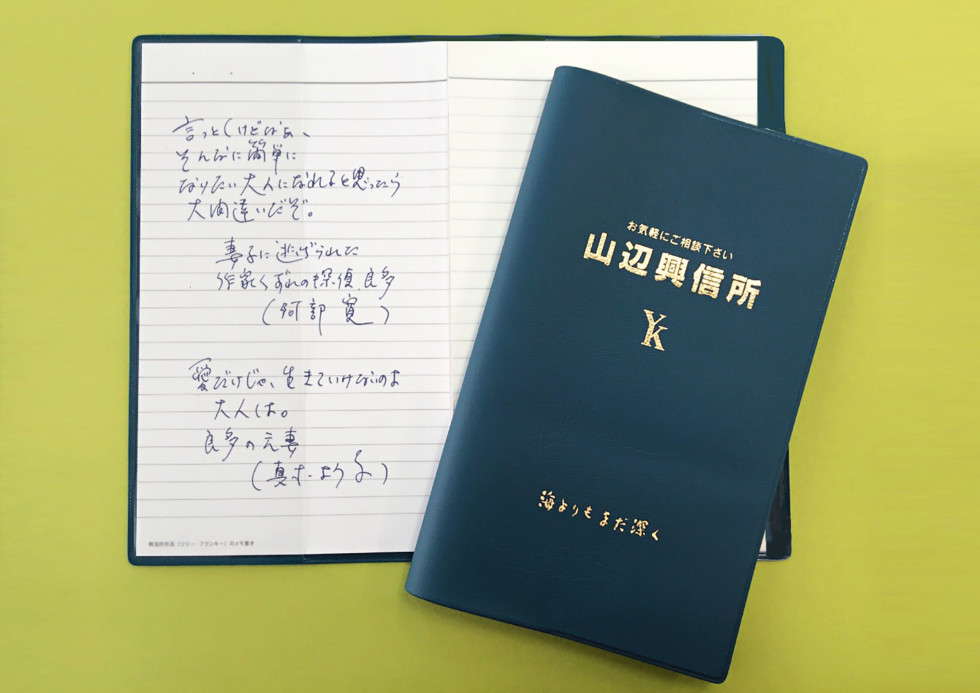 言っとくけどなぁ、
そんなに簡単に
なりたい大人になれると思ったら
大間違いだぞ。
妻子に逃げられた
作家くずれの探偵 良多
(阿部 寛)
愛だけじゃ、生きていけないのよ
大人は。
良多の元妻
(真木よう子)
興信所所長(リリー・フランキー)のメモ書き
お気軽にご相談下さい
山辺興信所
YK
海よりもまだ深く